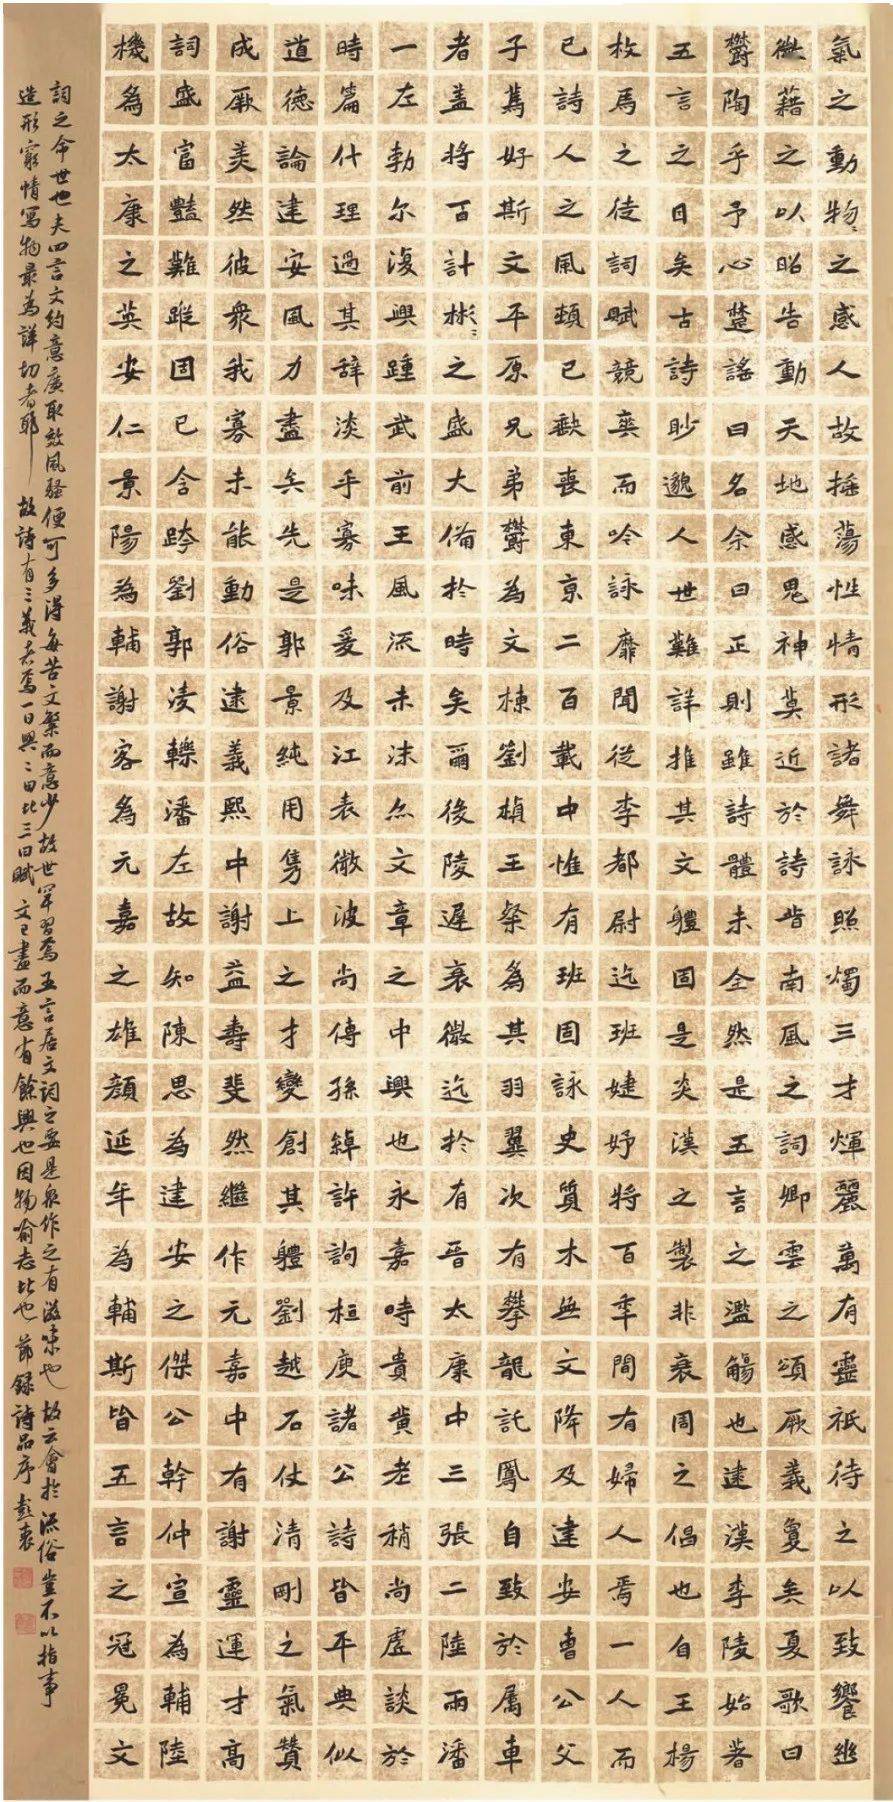 氣之動物〻之感人故搖蕩性情形諸舞詠照燭三才煇麗萬有靈祇待之以致饗幽
微藉之以昭告動天地感鬼神莫近於詩昔南風之詞卿雲之頌厥義敻矣夏歌曰
鬱陶乎予心楚謠曰名余曰正則雖詩體未全然是五言之濫觴也逮漢李陵始著
五言之目矣古詩眇邈人世難詳推其文體固是炎漢之製非衰周之倡也自王楊
枚馬之徒詞賦競爽而吟詠靡聞從李都尉迄班婕妤將百年間有婦人焉一人而
已詩人之風頓已缺喪東京二百載中惟有班固詠史質木無文降及建安曹公父
子篤好斯文平原兄弟鬱為文棟劉楨王粲為其羽翼次有攀龍託鳳自致於属車
者蓋將百計彬〻之盛大備於時矣爾後陵遲衰微迄於有晉太康中三張二陸兩潘
一左勃尔復興踵武前王風流未沫亦文章之中興也永嘉時貴黃老稍尚虛談於
時篇什理過其辞淡乎寡味爰及江表微波尚傳孫綽許詢桓庾諸公詩皆平典似
道德論建安風力盡矣先是郭景純用雋上之才變創其體劉越石仗清剛之氣贊
成厥美然彼衆我寡未能動俗逮義熙中謝益壽斐然繼作元嘉中有謝靈運才高
詞盛富豔難蹤固已含跨劉郭凌轢潘左故知陳思為建安之傑公幹仲宣為輔陸
機為太康之英安仁景陽為輔謝客為元嘉之雄顏延年為輔斯皆五言之冠冕文
詞之命世也夫四言文約意廣取效風騷便可多得每苦文繁而意少故世罕習焉五言居文詞之要是衆作之有滋味也故云會於流俗豈不以指事
造形窮情寫物最為詳切者耶故詩有三義者焉一曰興二曰比三曰賦文已盡而意有餘興也因物喻志比也節録詩品序彭